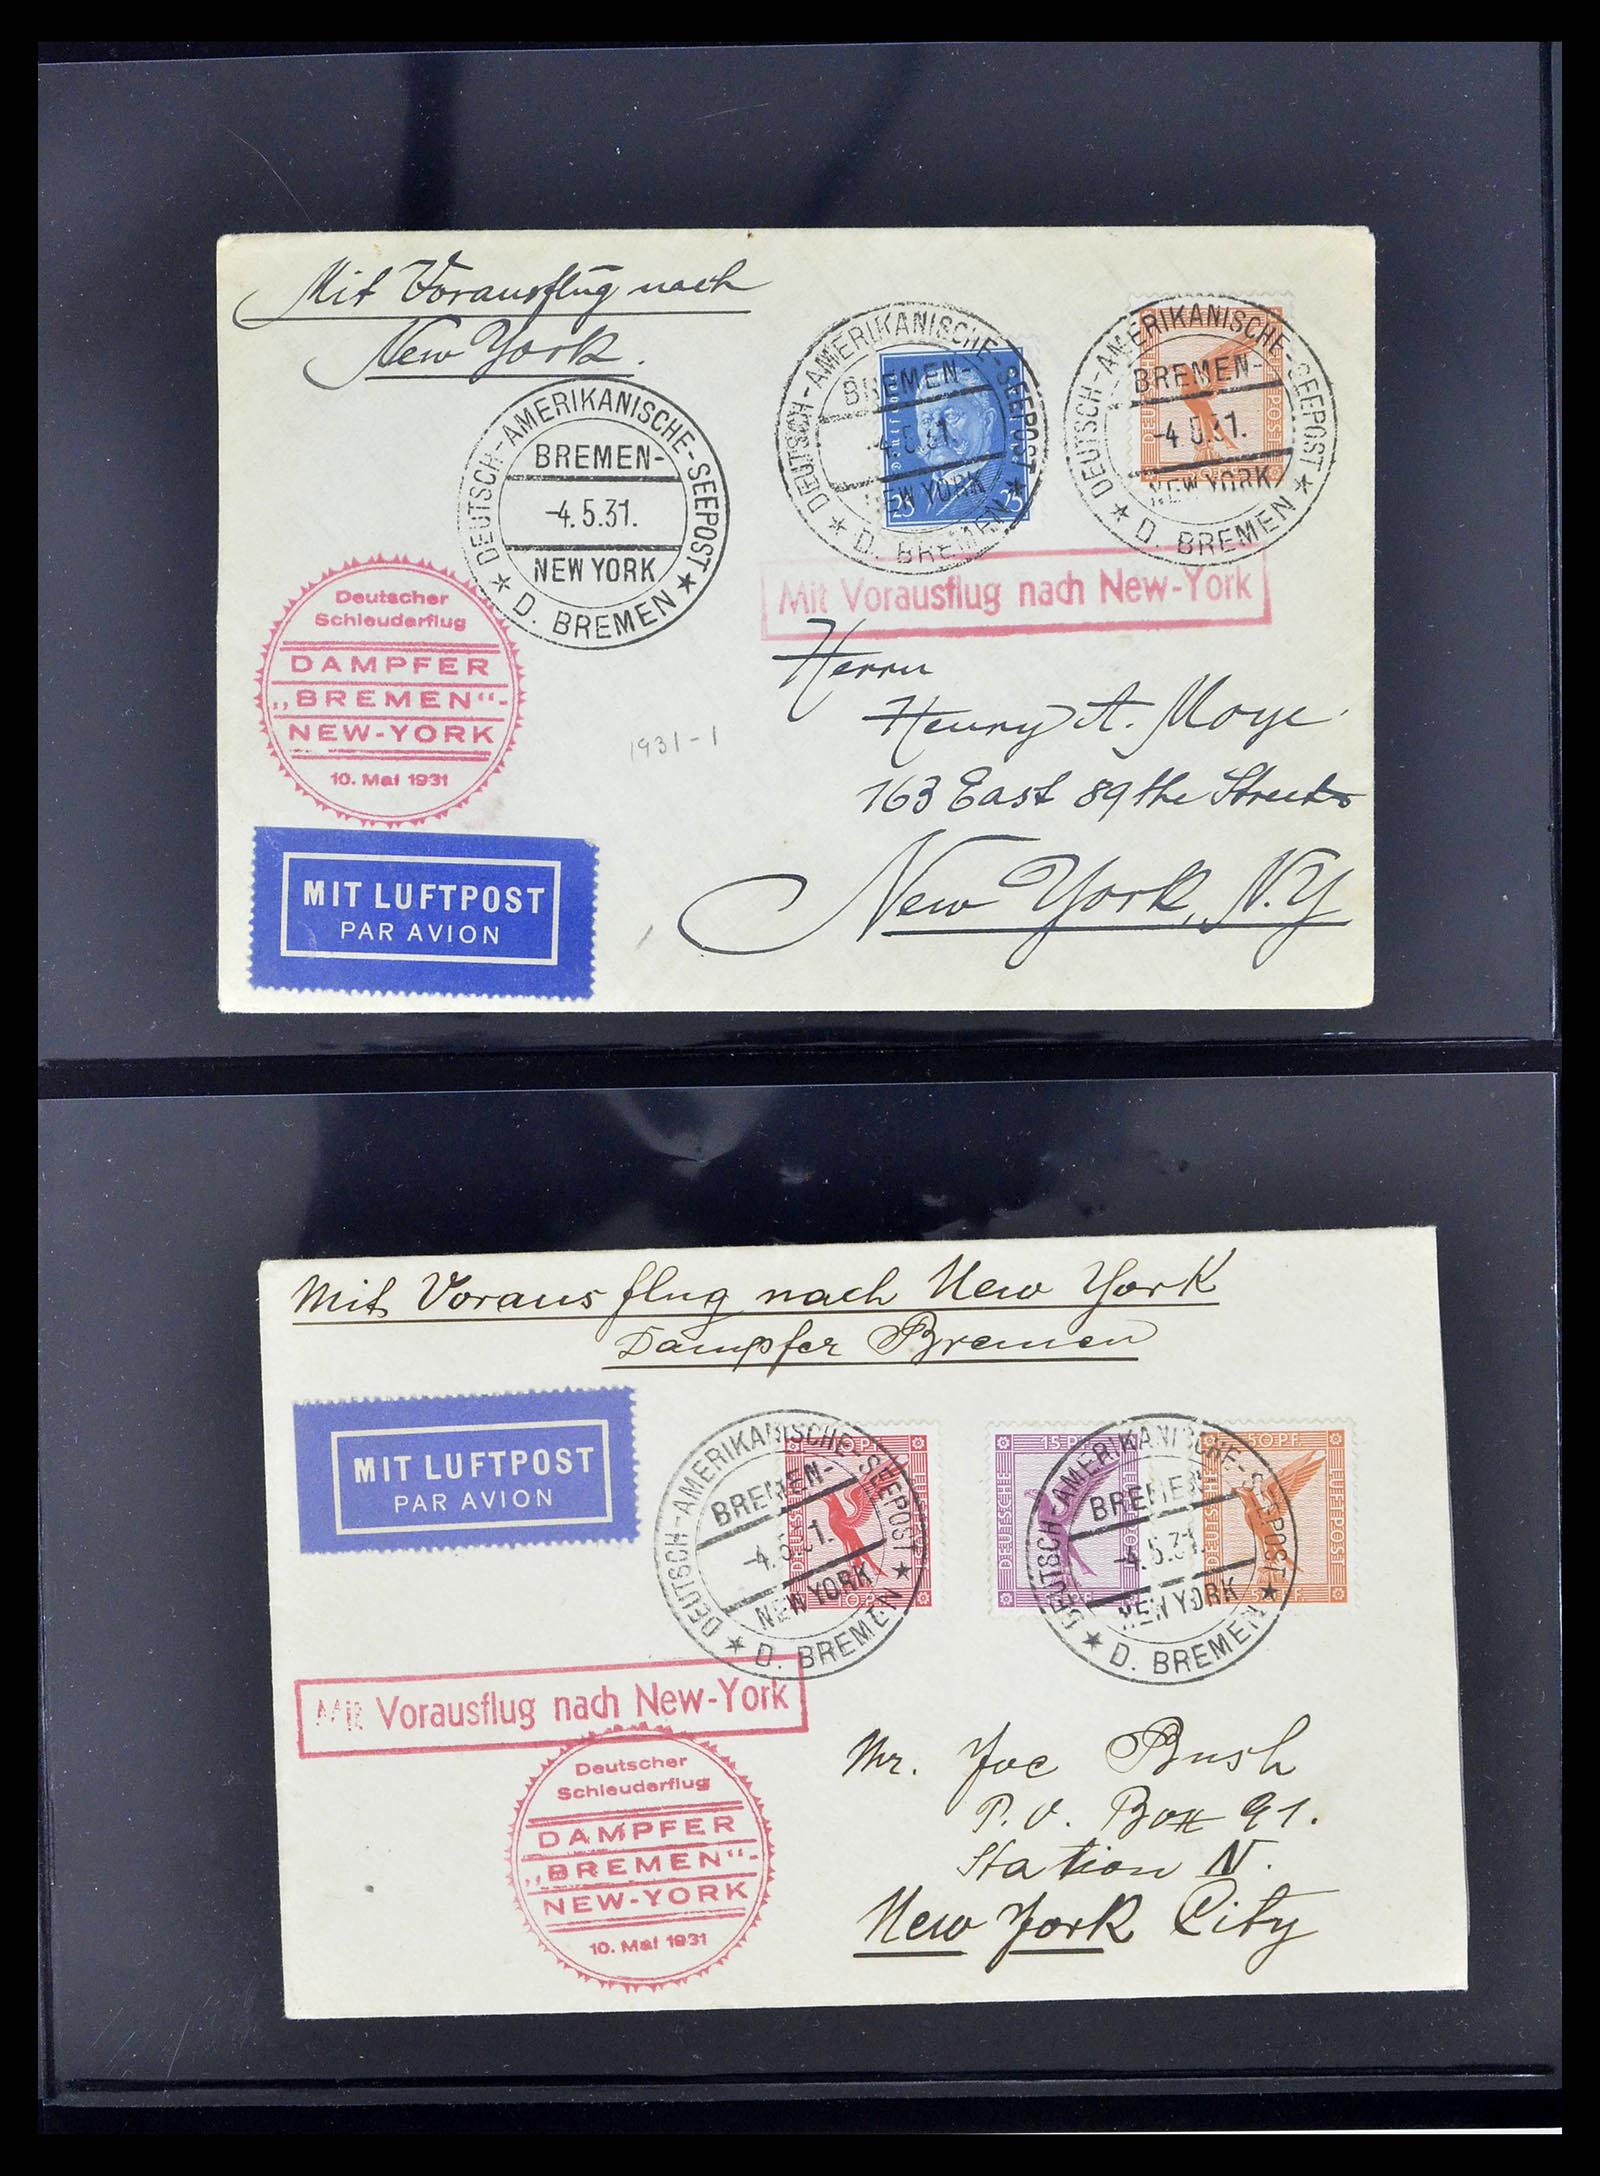 Mit Vorausflug nach
New York.
DEUTSCH-AMERIKANISCHE-SEEPOST
BREMEN-
-4.5.31.
NEW YORK
★ D. BREMEN ★
DEUTSCH-AMERIKANISCHE-SEEPOST
BREMEN-
-4.5.31.
NEW YORK
★ D. BREMEN ★
25 25
DEUTSCH-AMERIKANISCHE-SEEPOST
BREMEN-
-4.5.31.
NEW YORK
★ D. BREMEN ★
Mit Vorausflug nach New-York
Deutscher
Schleuderflug
DAMPFER
„BREMEN“-
NEW-YORK
10. Mai 1931
Herrn
Henry A. Moye
163 East 89the Street
New York, N.Y
1931-1
MIT LUFTPOST
PAR AVION
Mit Vorausflug nach New York
Dampfer Bremen
MIT LUFTPOST
PAR AVION
DEUTSCH-AMERIKANISCHE-SEEPOST
BREMEN-
-4.5.31.
NEW YORK
★ D. BREMEN ★
15 PF
DEUTSCHE
50 PF.
DEUTSCHE
FLUGPOST
DEUTSCH-AMERIKANISCHE-SEEPOST
BREMEN-
-4.5.31.
NEW YORK
★ D. BREMEN ★
Mit Vorausflug nach New-York
Deutscher
Schleuderflug
DAMPFER
„BREMEN“-
NEW-YORK
10. Mai 1931
Mr. Joe Bush
P.O. Box 91.
Station N.
New York City